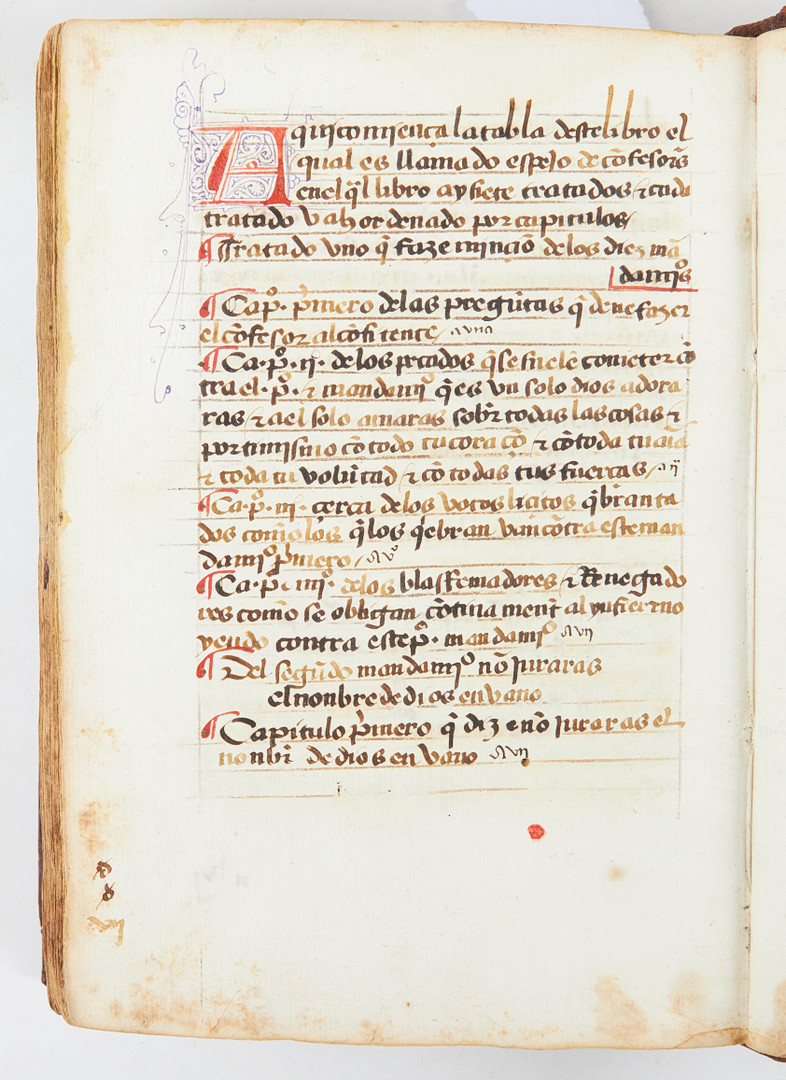 Aqui comiença la tabla deste libro el
qual es llamado espejo de cõfesores
en el q̃l libro ay siete tratados ⁊ cada
tratado vah ordenado por capitulos /
¶ Tratado vno q̃ faze minciõ delos diez mã
damiºs
¶ Capº. p̃imero delas pregũtas q̃ deue fazer
el cõfesor al cõfitente /
¶ Ca.pº. ij. delos pecados q̃ se suelẽ cometer cõ
tra el .pº. ⁊ mandamiº q̃ es vn solo dios adora
ras / ⁊ a el solo amaras sobr̃ todas las cosas ⁊
por ti mismo cõ todo tu coraçõ ⁊ cõ toda tu aĩa
⁊ toda tu volũtad / ⁊ cõ todas tus fuerças /
¶ Ca.pº. iij. cerca delos votos licitos q̃branta
dos como los q̃ los q̃ebran van cõtra este man
damiº p̃imero /
¶ Ca.pº. iiijº. delos blasfemadores / ⁊ Renegado
res como se obligan cõtinamenť al ynfierno
yendo contra este pº. mandamiº
¶ Del segũdo mandamiº nõ juraras
el nonbre de dios en vano
¶ Capitulo p̃imero q̃ dize nõ juraras el
nonbr̃ de dios en vano